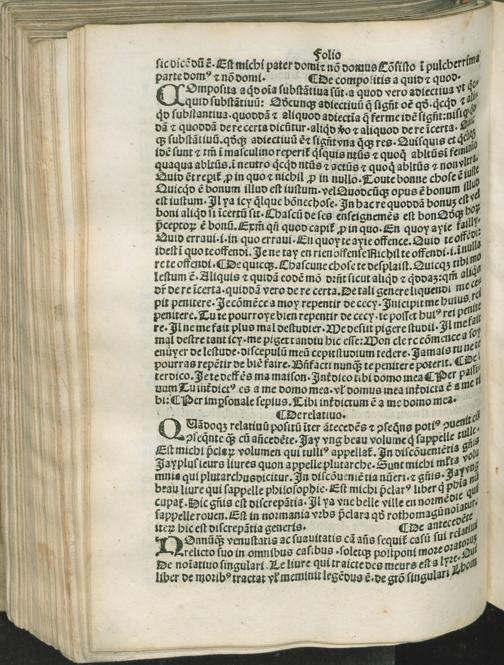 Folio
sic dicēdū ē. Est michi pater domi ⁊ nō domus Cōsisto ī pulcherrima
parte domꝰ ⁊ nō domi. ¶ De compositis a quid ⁊ quod.
COmposita a qd oīa substātiua sūt. a quod vero adiectiua vt
quid substātiuū: Qd'cunqꝫ adiectiuū
qd substantiua. quoddā ⁊ aliquod adiectīa
dā ⁊ quoddā de re certa dicūtur. aliqd ꝟo ⁊ aliquod de re īcerta.
substātiuū. adiectiuū ē ⁊ res. Quisquis et
idē sunt ⁊ tm̄ ī masculino reperit̄
quaqua abltūs. ī neutro ⁊ quoq̄ abltūs ⁊ non vltra.
Quid ēt repit̄ ꝓ in quo ⁊ nichil ꝓ in nullo. Toute bonne chose ē iuste
Quicqd ē bonum illud est iustum. vel Quodcūqꝫ opus ē bonum illud
est iustum. Il ya icy q̄lque bōnechose. In hac re quoddā bonuꝫ est vel
boni aliqd īi īcertū sūt. Chascū de ses enseignemēs est bon
p̄ceptoꝝ ē bonū. Etm̄ qn̄ quod capit̄ ꝓ in quo. En quoy ay ie failly.
Quid erraui. i. in quo erraui. En quoy te ay ie offence. Quid te offēdi:
idest ī quo te offendi. Je ne tay en rien offense Nichil te offendi. i. ī nulla
re te offendi. ¶ De quicqꝫ. Chascune chose te desplaist. Quicqꝫ tibi mo
lestum ē. Aliquis ⁊ quidā eodē mō aliqd ⁊ qd'daꝫ: qm̄ aliqs
dr̄ de re īcerta. quiddā vero de re certa. De tali genere liquendi me ce
pit penitere. Je cōmēce a moy repentir de cecy. Inicipit me huius rei
penitere. Tu te pourroye bien repentir de cecy. te posset huiꝰ rei penite
re. Il ne me fait plus mal destudier. Me desiit pigere studii. Il me fait
mal destre tant icy. me piget tandiu hic esse: Mon clerc cōmence a soy
ennyer de lestude. discepulū meū cepit studium tedere. Jamais tu ne te
pourras repētir de biē faire. Bn̄facti nunqꝫ te penitere poterit. ¶ De
terdico. Je te deffēs ma maison. Int̄dico tibi domo mea ¶ Per passi
uum Tu int̄diciꝰ es a me domo mea. vl' domus mea int̄dicta ē a me ti
bi: ¶ Per imꝑsonale sepius. Tibi int̄dictum ē a me domo mea.
¶ De relatiuo.
QUādoqꝫ relatiuū positū iter ātecedēs ⁊ ꝓseqn̄s potiꝰ ꝯuenit cū
ꝓseqn̄te qꝫ cū an̄cedēte. Jay vng beau volume q̄ sappelle tulle.
Est michi p̄clar volumen qui tulliꝰ appellat̄. In discōuenientia gn̄is
Jay plusieurs liures quon appelle plutarche. Sunt michi ml'ta volu
mnia qui plutarchus dicitur. In discōueniētia nūeri ⁊ gn̄is. Jay vng
beau liure qui sappelle philosophie. Est michi p̄clarꝰ liber q̄ phīa nū
cupat̄. Hic gn̄is est discrepātia. Il ya vne belle ville en normēdie qui
sappelle rouen. Est in normania vrbs p̄clara qd' rothomagū noīatur.
iteꝝ hic est discrepātia generis. ¶ De antecedēte
NOnnūqꝫ venustatis ac suauitatis cā an̄s sequit̄ casū sui relatiui
relicto suo in omnibus casibus. soletqꝫ postponi more oratorum
De noīatiuo singulari. Le liure qui traicte des meurs est a lyre. Qui
liber de moribꝰ tractat vl' meminit legēdus ē. de gt̄ō singulari Lhom